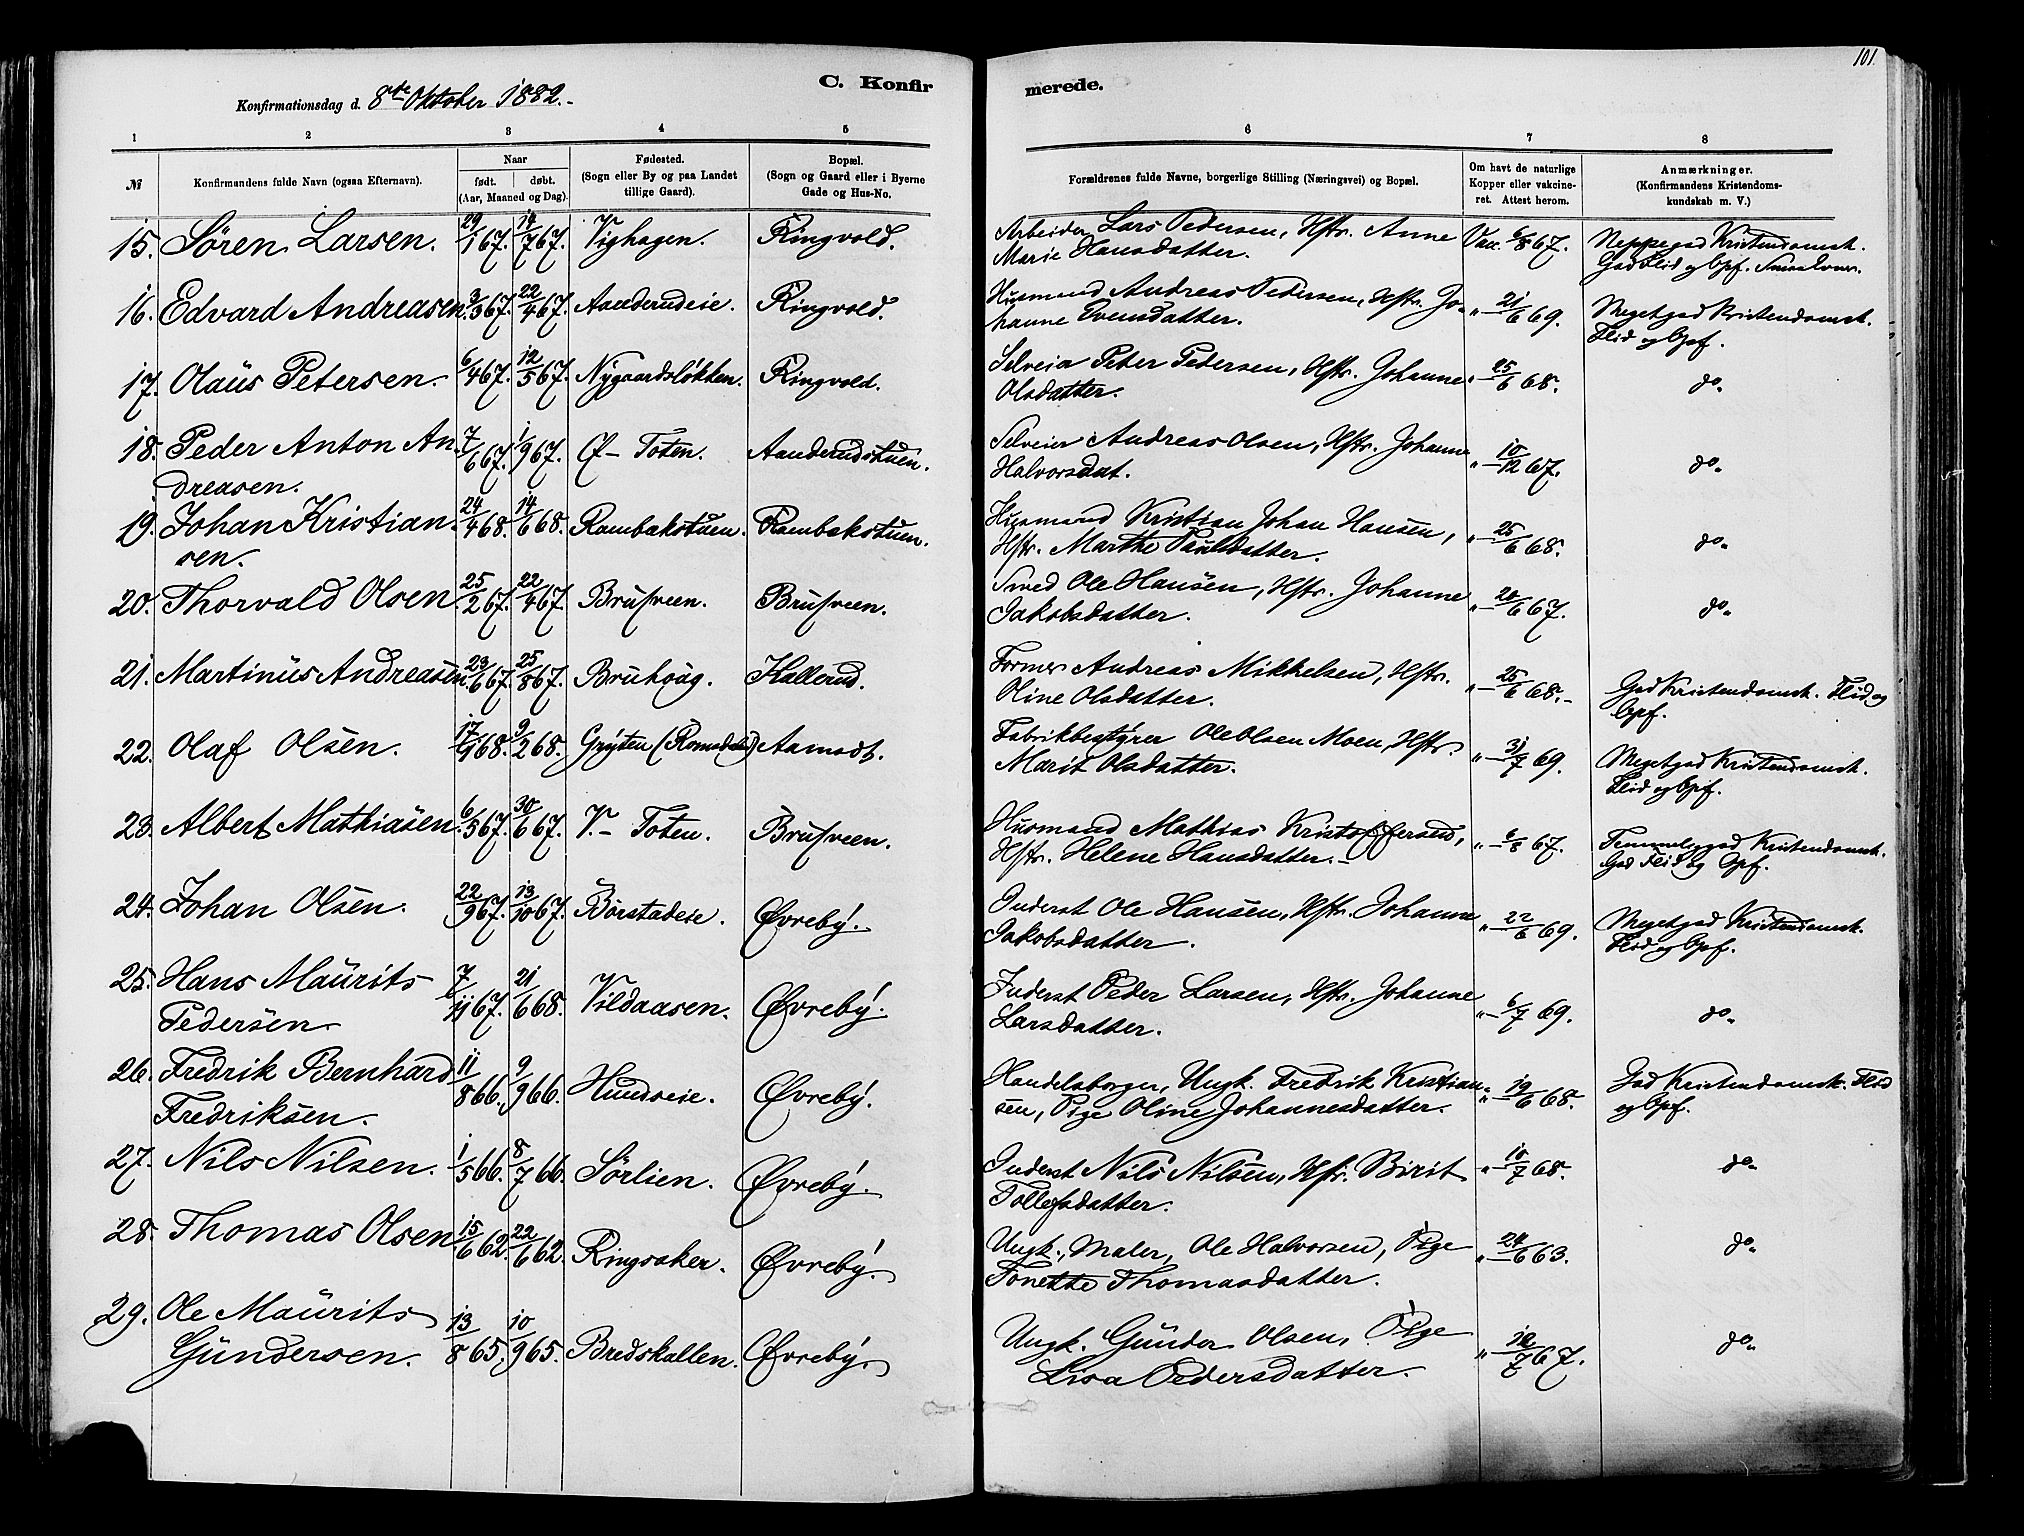 101.
C. Konfir merede.
Konfirmationsdag d. 8de Oktober 1882.
1 2 3 4 5 6 7 8
№ Konfirmandens fulde Navn (ogsaa Efternavn). Naar født. døbt. (Aar, Maaned og Dag). Fødested. (Sogn eller By og paa Landet tillige Gaard). Bopæl. (Sogn og Gaard eller i Byerne Gade og Hus-No. Forældrenes fulde Navne, borgerlige Stilling (Næringsvei) og Bopæl. Om havt de naturlige Kopper eller vakcineret. Attest herom. Anmærkninger. (Konfirmandens Kristendomskundskab m. V.)
15. Søren Larsen. 29/1 67. 14/7 67. Vighagen. Ringvold. Arbeider Lars Pedersen, Hstr. Anne Vac. 6/8 67. Neppe god Kristendomsk.
Marie Hansdatter. God Flid og Opf.
16. Edvard Andreasen. 3/3 67. 22/4 67. Aanderudeie. Ringvold. Husmand Andreas Pedersen, Hstr. Jo- " 21/6 69. Meget god Kristendomsk.
hanne Evensdatter. Flid og Opf.
17. Olaüs Petersen. 6/4 67. 12/5 67. Nygaardsløkken. Ringvold. Selveier Peter Pedersen, Hstr. Johanne " 25/6 68. do.
Olsdatter.
18. Peder Anton An- 7/6 67. 1/9 67. Ø- Toten. Aanderudstuen. Selveier Andreas Olsen, Hstr. Johanne " 10/12 67. do.
dreasen. Halvorsdat.
19. Johan Kristian- 24/4 68. 14/6 68. Rambakstuen. Rambakstuen. Husmand Kristian Johan Hansen, " 25/6 68. do.
sen. Hstr. Marthe Paulsdatter.
20. Thorvald Olsen. 25/2 67. 22/4 67. Brusveen. Brusveen. Smed Ole Hansen, Hstr. Johanne " 20/6 67. do.
Jakobsdatter.
21. Martinüs Andreasen. 23/6 67. 25/8 67. Bruhaug. Hallerud. Former Andreas Mikkelsen, Hstr. " 25/6 68. God Kristendomsk. Flid og
Oline Olsdatter. Opf.
22. Olaf Olsen. 17/1 68. 9/2 68. Gryten (Romsdalen) Aamodt. Fabrikbestyrer Ole Olsen Moen, Hstr. " 31/7 69. Meget god Kristendomsk.
Marit Olsdatter. Flid og Opf.
23. Albert Mathiasen. 6/5 67. 30/6 67. V.- Toten. Brusveen. Husmand Mathias Kristoffersen, " 6/8 67. Temmelig god Kristendomsk.
Hstr. Helene Hansdatter. God Flid og Opf.
24. Johan Olsen. 22/9 67. 13/10 67. Børstadeie. Øvreby. Inderst Ole Hansen, Hstr. Johanne " 22/6 69. Meget god Kristendomsk.
Jakobsdatter. Flid og Opf.
25. Hans Maürits 7/11 67. 21/6 68. Vildaasen. Øvreby. Inderst Peder Larsen, Hstr. Johanne " 6/7 69. do.
Pedersen. Larsdatter.
26. Fredrik Bernhard 11/8 66. 9/9 66. Hundseie. Øvreby. Handelsborger, Ungk. Fredrik Kristian- " 19/6 68. God Kristendomsk. Flid
Fredriksen. sen, Pige Oline Johannesdatter. og Opf.
27. Nils Nilsen. 1/5 66. 8/7 66. Sørlien. Øvreby. Inderst Nils Nilsen, Hstr. Birit " 10/7 68. do.
Tollefsdatter.
28. Thomas Olsen. 15/6 62. 22/6 62. Ringsaker. Øvreby. Ungk., Maler, Ole Halvorsen, Pige " 24/6 63. do.
Tonette Thomasdatter.
29. Ole Maürits 13/8 65. 10/9 65. Bredskallen. Øvreby. Ungk. Günder Olsen, Pige " 12/7 67. do.
Gündersen. Lisa Pedersdatter.